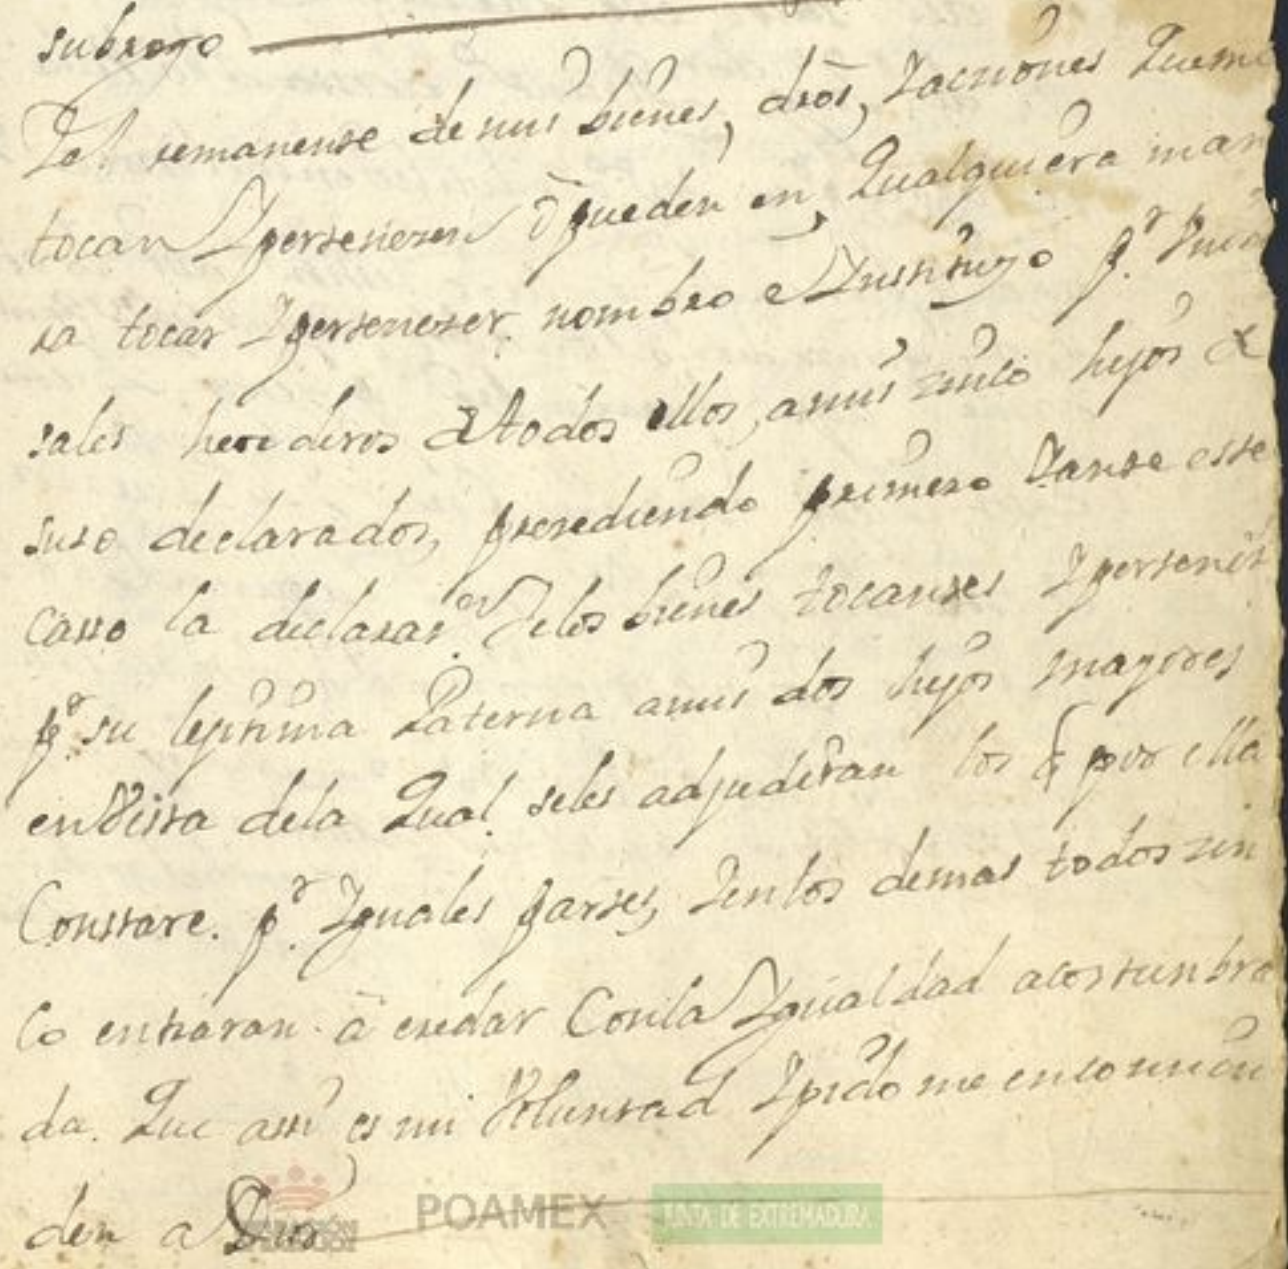 subrogo
Yel remanente de mis bienes, dros, Yacciones Queme
tocan Ypertenezen ô pueden en Qualquiera mane
ra tocar Ypertenezer nombro e Ynstituyo pr. Univer
sales herederos de todos ellos, amis zinco hijos de
suso declarados, prezediendo primero Yante este
casso la declarazon. Delos bienes tocantes Yperteneztes
pr. su lejitima Paterna amis dos hijos mayores
en Vista dela Qual seles adjudicaran los q por ella
Constare. pr. Yguales partes, Yenlos demas todos zin
co entraran â eredar Conla Ygualdad acostumbra
da. Que assi es mi Voluntad Ypido me encomien
den a Dios
POAMEX
JUNTA DE EXTREMADURA